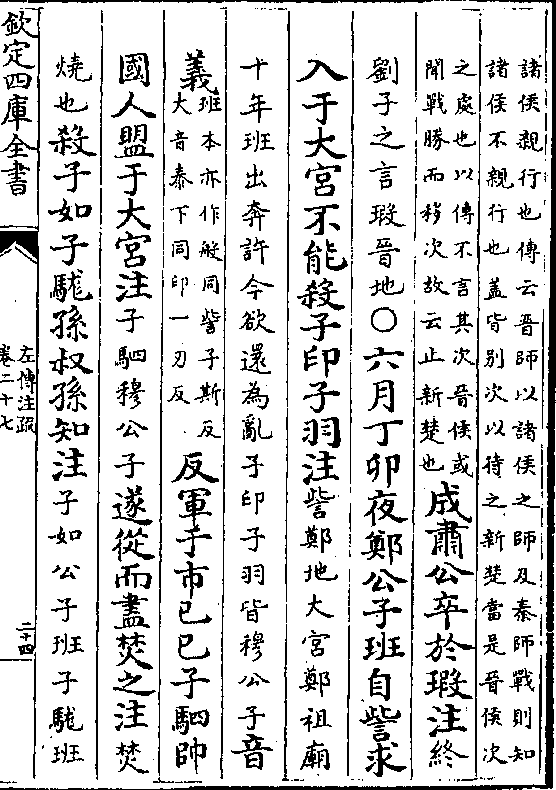 諸侯親行也傳云晉師以諸侯之師及秦師戰則知
諸侯不親行也蓋皆別次以待之新楚當是晉侯次
之處也以傳不言其次晉侯或
聞戰勝而移次故云止新楚也
成肅公卒於瑕注終
劉子之言瑕晉地○六月丁卯夜鄭公子班自訾求
入于大宮不能殺子印子羽注訾鄭地大宮鄭祖廟
十年班出奔許今欲還為亂子印子羽皆穆公子音
義班本亦作般同訾子斯反
大音泰下同印一刃反
反軍于市已巳子駟帥
國人盟于大宮注子駟穆公子遂從而盡焚之注焚
燒也殺子如子駹孫叔孫知注子如公子班子駹班
欽定四庫全書
左傳注疏
卷二十七
二十四